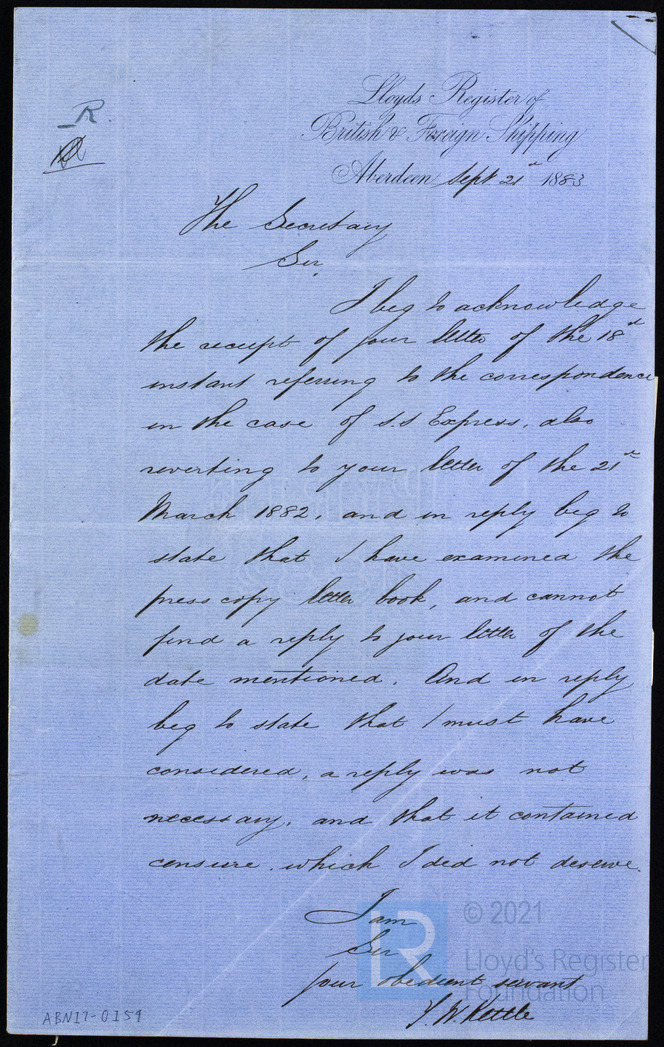 R
Lloyds Register of
British & Foreign Shipping
Aberdeen Sept 21st 1883
The Secretary
Sir
I beg to acknowledge
the receipt of your letter of the 18th
instant referring to the correspondence
in the case of s.s Express, also
reverting to your letter of the 21st
March 1882, and in reply beg to
state that I have examined the
press copy letter book, and cannot
find a reply to your letter of the
date mentioned. And in reply
beg to state that I must have
considered, a reply was not
necessary, and that it contained
censure which I did not deserve.
I am
Sir
your obedient servant
T. W. Kettle
LR
© 2021
Lloyd's Register
Foundation
ABN17-0159